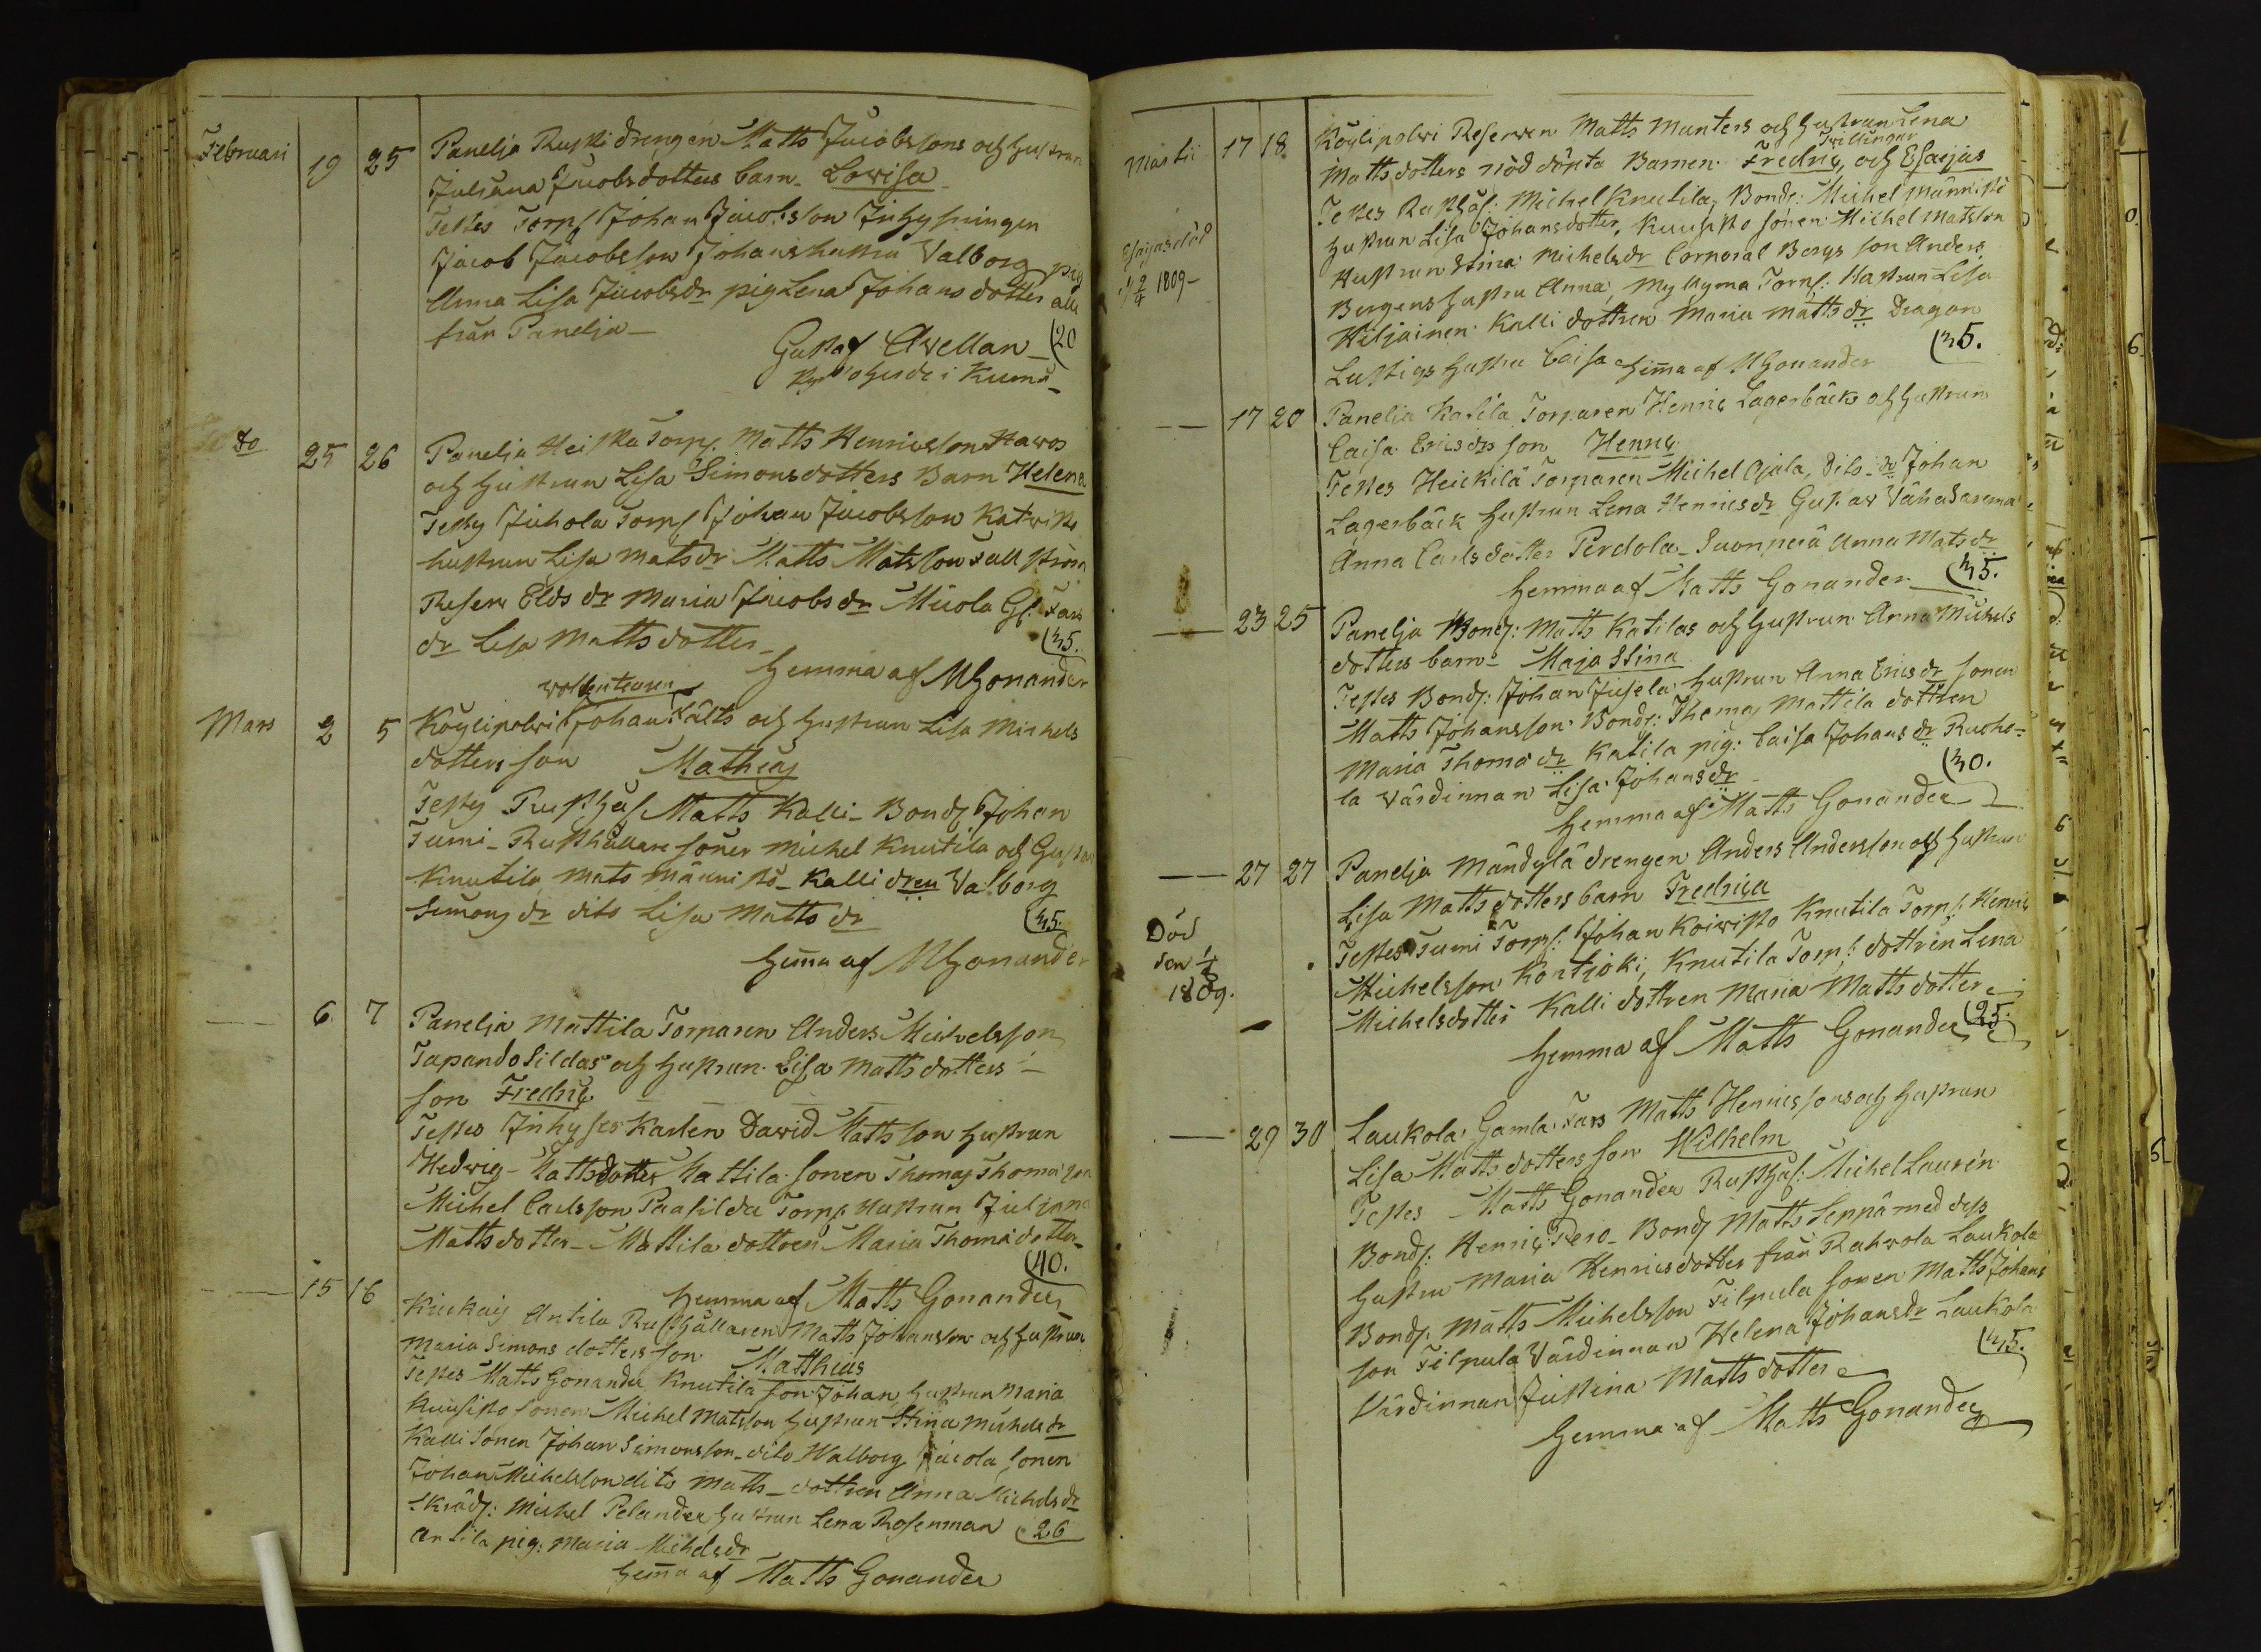 Februari 19 25 Panelja Ruski drengen Matts Jacobssons och hustrun
Juliana Jacobsdotters barn Lovisa
Testes Torp Johan Jacobsson Inhysningen
Jacob Jacobsson Johans hustru Valborg pig
Anna Lisa Jacobsdr pig Lena Johansdotter alla
från Panelja
Gustaf Avellan (20
i Kumo
do 25 26 Panelja Heiska Torp. Matts Henricsson
och hustrun Lisa Simonsdotters Barn Helena
Testes Juhola Torp Johan Jacobsson
hustrun Lisa Matsdr Matts Matsson
Reserv Maria Jacobsdr Micola
dr Lisa Mattsdotter (45.
hemma af MGonander
Mars 2 5 Köylipolvi volonteuren Johan Fälts och hustrun Lisa Michels
dotters son Mathias
Testes Rusth: Matts Kalli Bond Johan
Tumi Rusthållare söner Michel Knutila och Gustav
Knutila Mats Männistö Kalli dren Valborg
Simons dr dito Lisa Matts dr (45.
hemma af MGonander
6 7 Panelja Mattila Torparen Anders Michelsson
och hustrun Lisa Mattsdotters
son Fredric
Testes Inhyses Karlen David Mattsson hustrun
Hedvig Mattsdotter Mattila sonen Thomas Thomasson
Michel Carlsson Paasilda Torp Hustrun Juliana
Mattsdotter Mattila dottren Maria Thomædotter
(40.
hemma af Matts Gonander
15 16 Kiukais Antila Rusthållaren Matts Johansson och hustrun
Maria Simonsdotters son Matthias
Testes Matts Gonander Knutila son Johan hustrun Maria
Kuusisto sonen Michel Matsson hustrun Stina Michelsdr
Kalli sonen Johan Simonsson dito Walborg sonen
Johan Michelsson dito Matts dottren Anna Michelsdr
Skräd: Michel Pelander hustrun Lena Rosenman (26
Antila pig: Maria Michelsdr
hemma af Matts Gonander
Martii 17 18 Köylipolvi Reserven Matts Munters och hustrun Lena
Mattsdotters nöddöpta Barnen Tvillingar Fredric, och Esaijas
Testes Rusthål: Michel Knutila, Bond: Michel Männistö
hustrun Lisa Johansdotter, Kuusisto sonen Michel Matsson
Hustrun Stina Michelsdr Corporal Bergs son Anders
Bergens hustru Anna, Torp: Hustrun Lisa
Kalli dottren Maria Mattsdr Dragon
Lustigs hustru Caisa hemma af MGonander (45.
Esaijas död
d 2/4 1809
17 20 Panelja Katila Torparen Henric Lagerbäcks och hustrun
Caisa Ericsdrs son Henric
Testes Heickilä Torparen Michel Ojala, Dito do Johan
Lagerbäck hustrun Lena Henricsdr Gust. av
Anna Carlsdotter Perdola Suonperä Anna Matsdr
hemma af Matts Gonander (45.
23 25 Panelja Bond: Matts Katilas och hustrun Anna Michels
dotters barn Maja Stina
Testes Bond: Johan Jusela hustrun Anna Ericsdr sonen
Matts Johansson Bond: Thomas Mattila dottren
Maria Thomædr Katila pig: Caisa Johansdr Ruoho-
la Värdinnan Lisa Johansdr (30.
hemma af Matts Gonander
27 27 Panelja Mändylä drengen Anders Andersson och hustrun
Lisa Mattsdotters barn Fredrica
Testes Tumi Torp: Johan Koivisto Knutila Torp: Henric
Michelsson Kortjoki, Knutila Torp: dottren Lena
Michelsdotter Kalli dottren Maria Mattsdotter
hemma af Matts Gonander (25.
Död
den 1/4
1809.
29 30 Laukola Gamla Fars Matts Henricssons och hustrun
Lisa Mattsdotters son Wilhelm
Testes Matts Gonander Rusthål: Michel Laurén
Bond: Henric Pero Bond Matts Seppä med dess
hustru Maria Henricsdotter från Rahvola Laukola
Bond: Matts Michelsson Filpula sonen Matts Johans
son Filpula Värdinnan Helena Johansdr Laukola
Värdinnan Justina Mattsdotter (45.
hemma af Matts Gonander